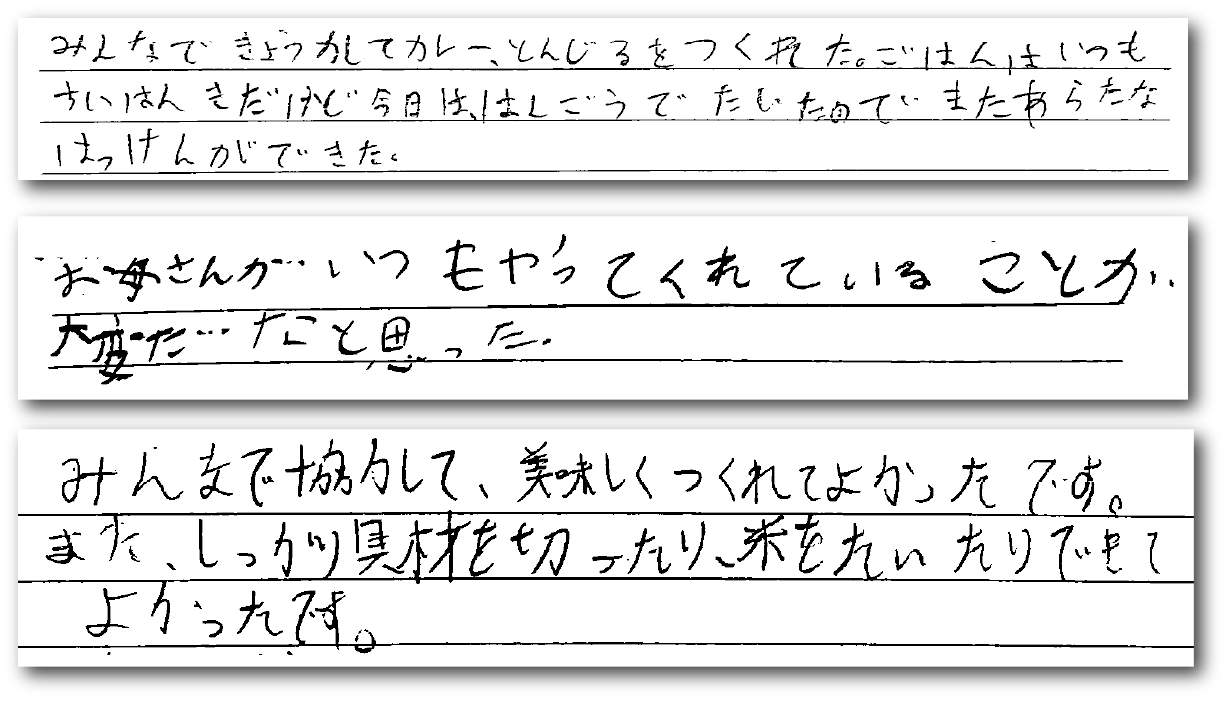 みんなできょう力してカレー、とんじるをつくれた。ごはんはいつも
すいはんきだけど今日は、はんごうでたいたのでまたあらたな
はっけんができた。
お母さんがいつもやってくれていることが
大変だなと思った。
みんなで協力して、美味しくつくれてよかったです。
また、しっかり具材を切ったり、米をたいたりできて
よかったです。